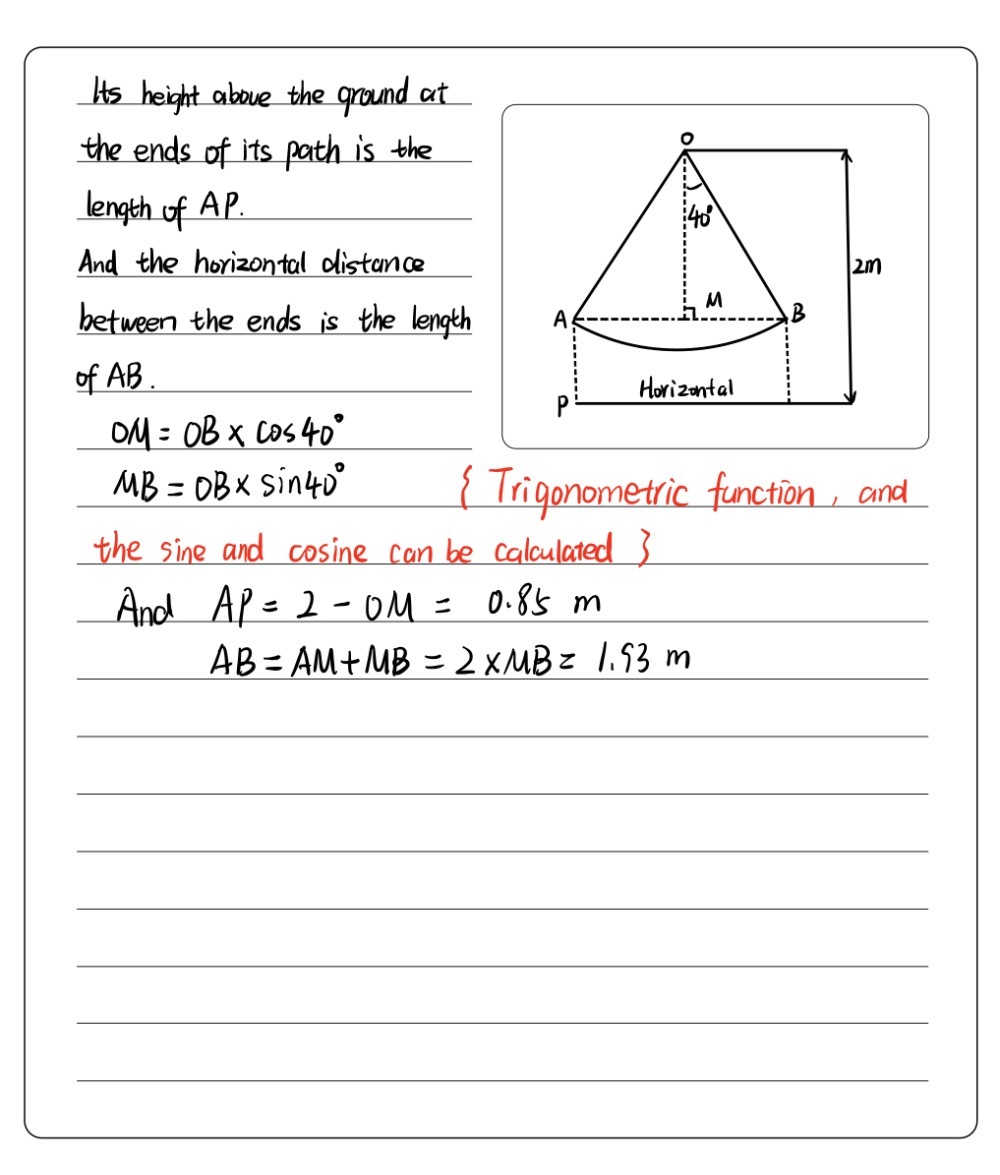 Its height above the ground at
the ends of its path is the
length of AP.
And the horizontal distance
between the ends is the length
of AB.
O
40°
2m
A
M
B
Horizontal
P
OM = OB × cos40°
MB = OB × sin40°
{ Trigonometric function, and
the sine and cosine can be calculated }
And AP = 2 - OM = 0.85 m
AB = AM + MB = 2 × MB = 1.93 m